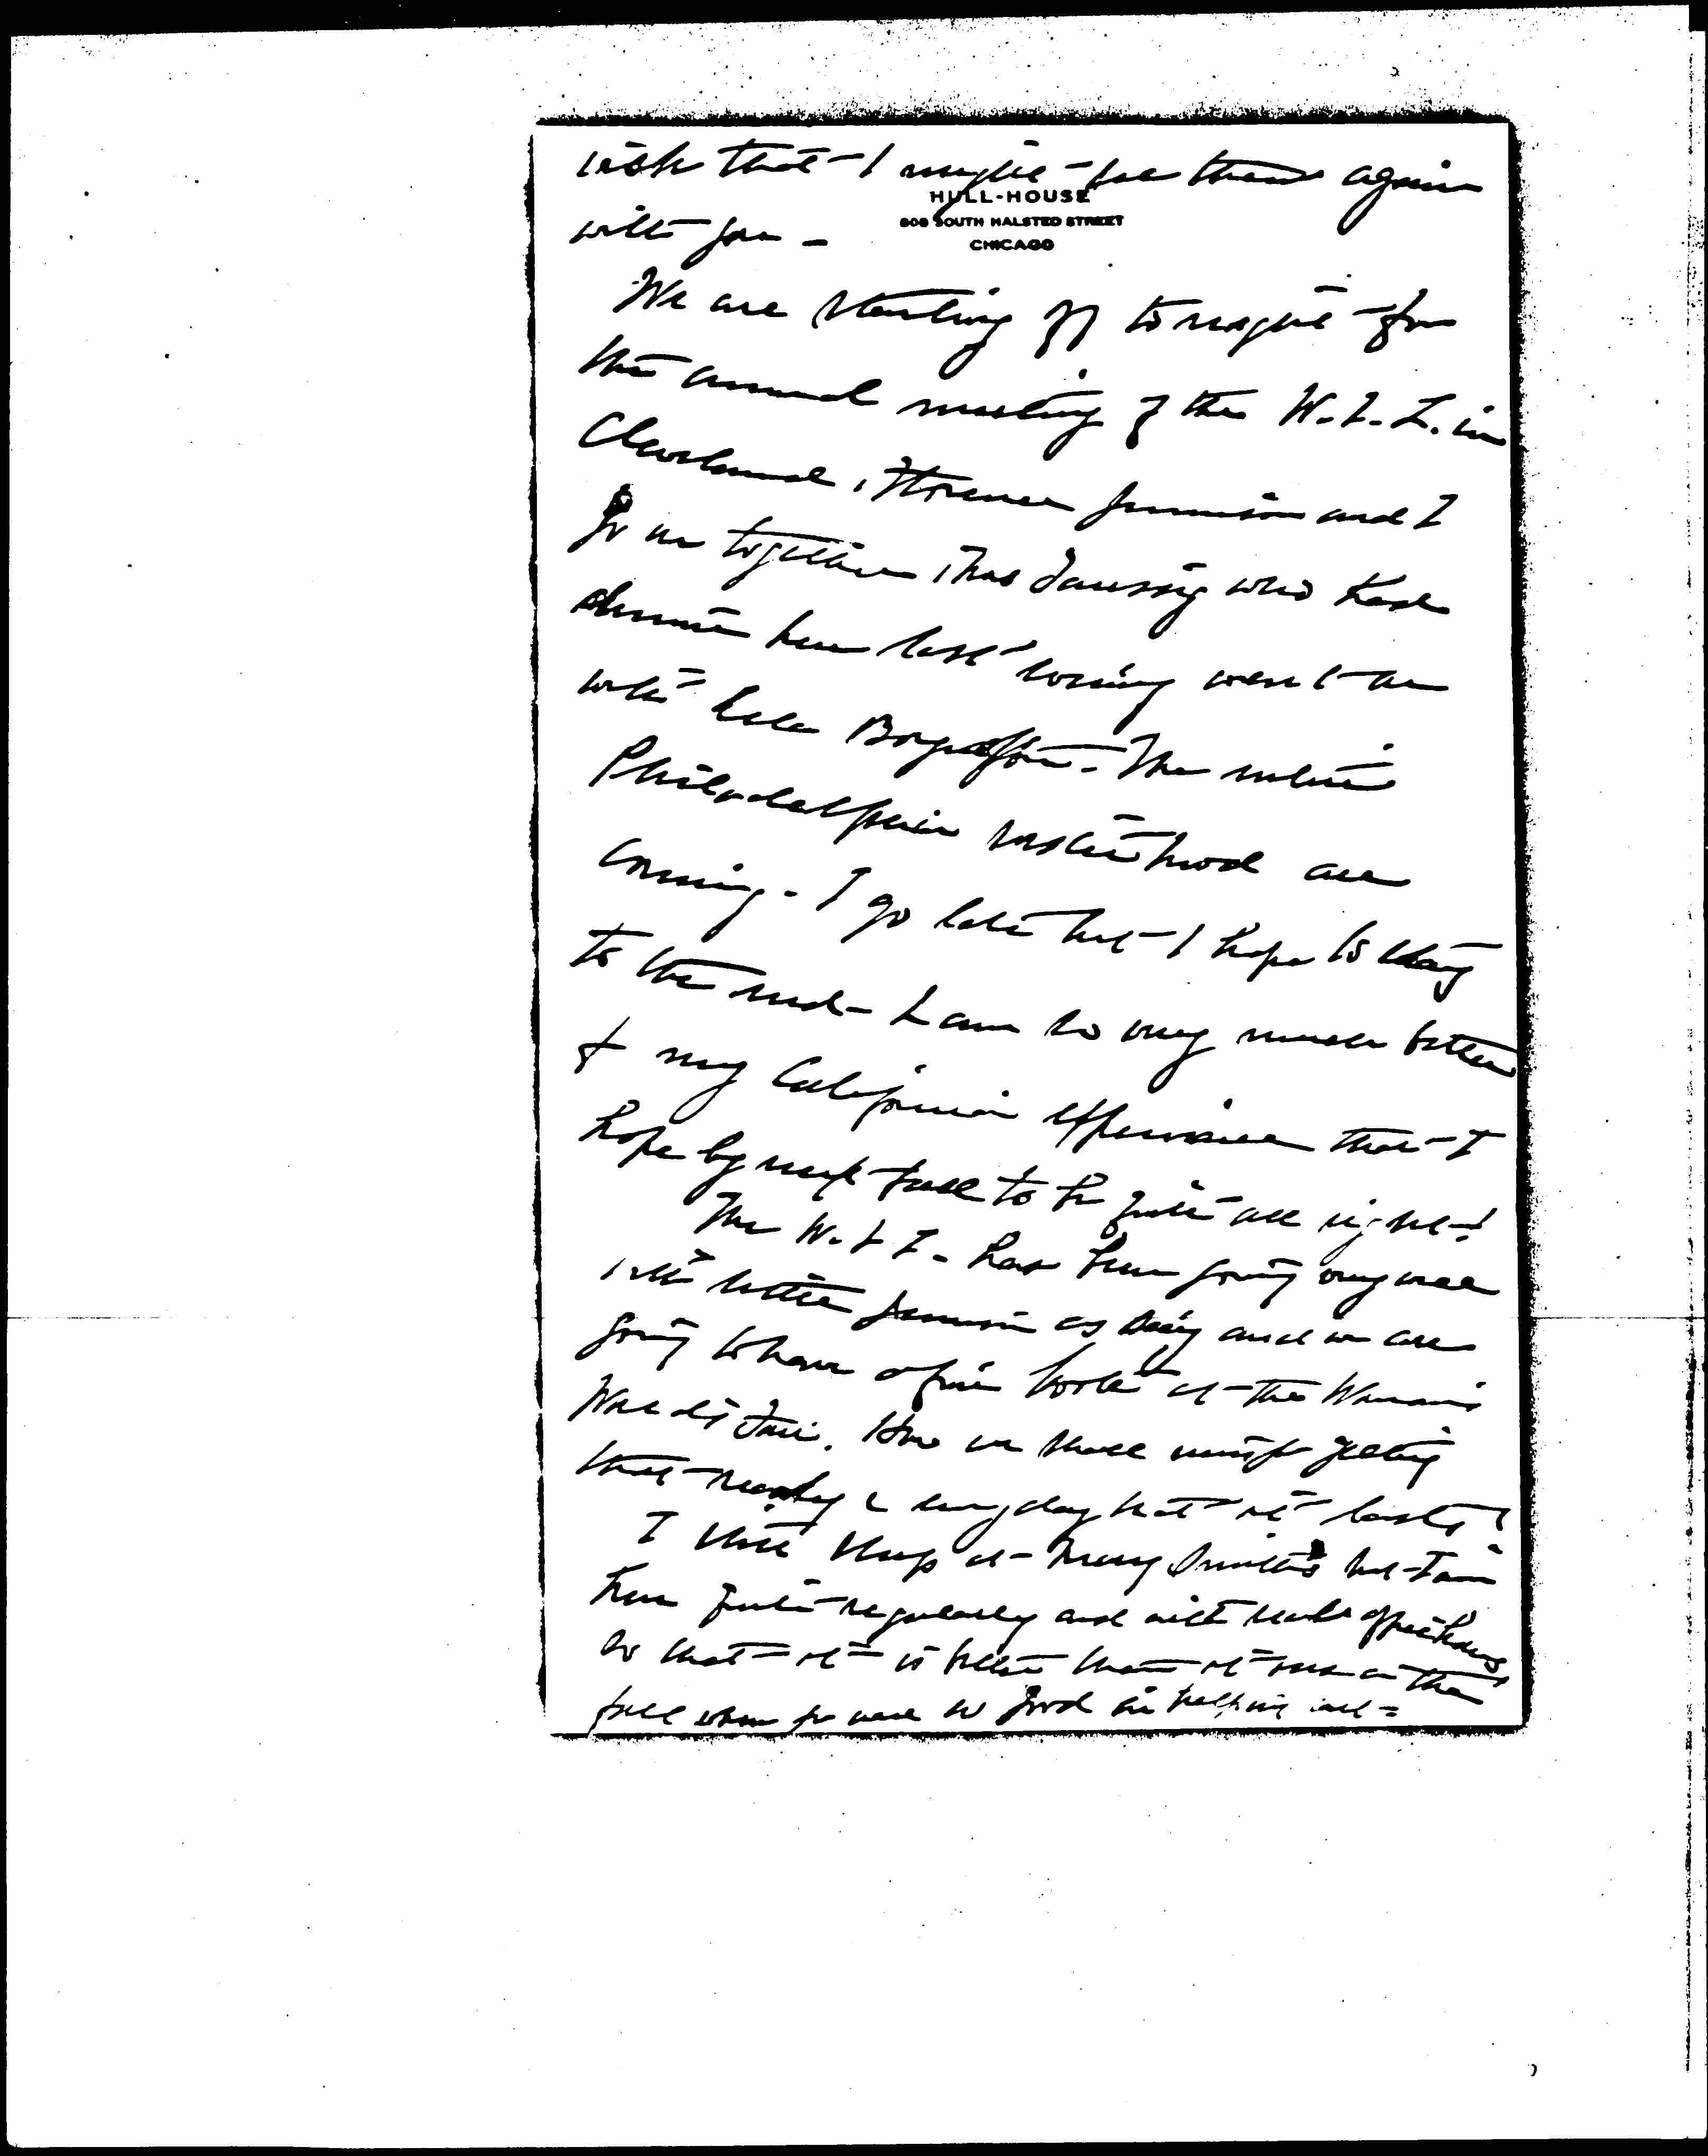 wish that I might see them again
HULL-HOUSE
800 SOUTH HALSTED STREET
CHICAGO
with you -
We are starting off tonight for
the annual meeting of the W.I.L. in
Cleveland, Florence Jennison and I
go on together, Mrs Taussig who had
dinner here last evening went on
with Lola. The entire
Philadelphia sisterhood are
coming - I go late but I hope to stay
to the end - I am so very much better
& my California experience that I
hope by next fall to be quite all right!
The W.I.L. has been going very well
with little Jennison as Sec'y and we are
going to have a fine booth at the Woman's
World's Fair. How we shall miss getting
that ready & every day that it lasts!
I still sleep at Mary Smith's but I am
here quite regularly and with office hours
so that it is better than it was in the
fall when you were so good in helping out -